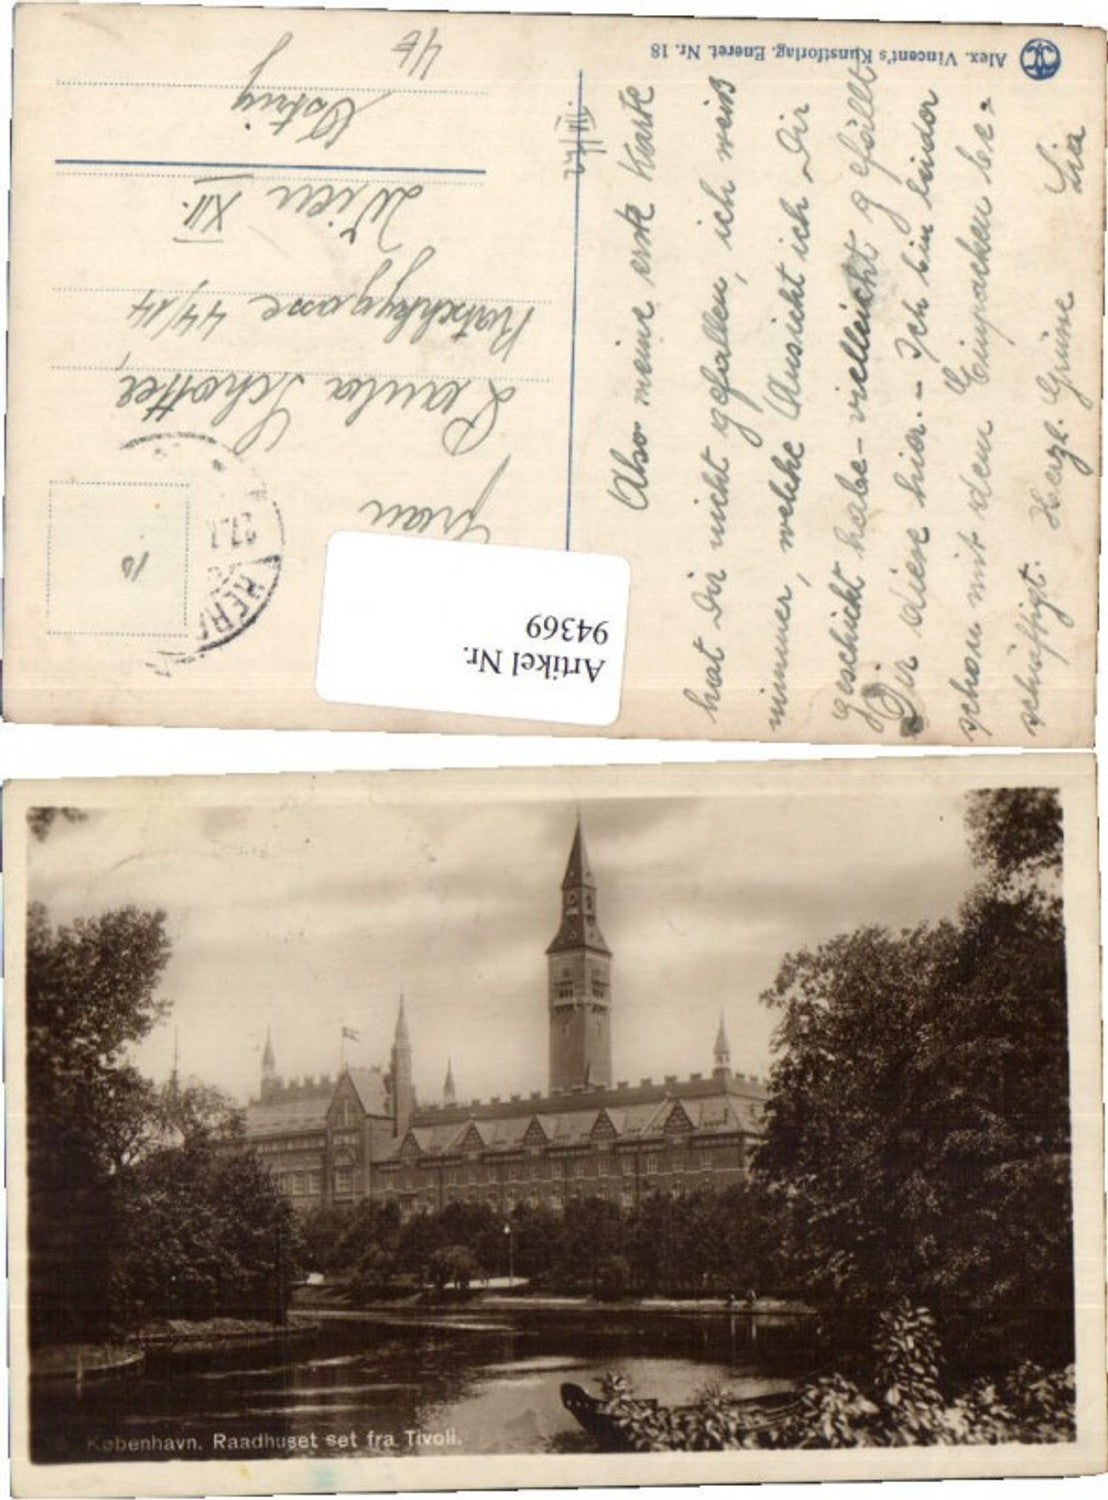 Alex. Vincent's Kunstforlag. Eneret. Nr. 18
Also meine erste Karte
hat Dir nicht gefallen, ich weiß
nimmer, welche Ansicht ich Dir
geschickt habe - vielleicht gefällt
Dir diese hier. - Ich bin leider
schon mit dem Einpacken be-
schäftigt. Herzl. Grüsse Lia
Frau
Paula Schottel,
Ratschkygasse 44/14
Wien XII.
10
Artikel Nr.
94369
København. Raadhuset set fra Tivoli.